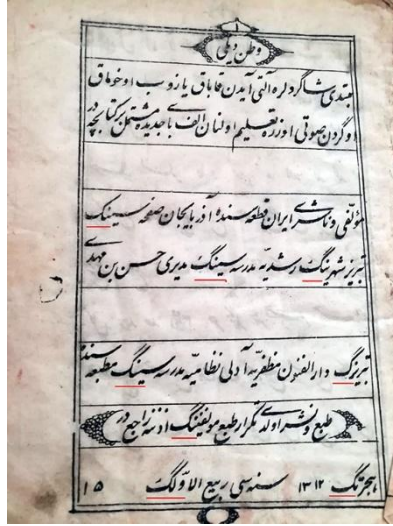 وطن دیلی
مبتدی شاگردلره آلتی آیدن قاباق یازوب اوخوماق
اوگردن صوتی اوزره تعلیم اولنان الف بای جدیده مشتمل بر کتابچه در
مؤلفی و ناشری ایران قطعه سنده آذربایجان صفحه سینگ
تبریز شهرینگ رشدیه مدرسه سینگ مدیری حسن بن مهدی
تبریزنگ دارالفنون مظفریه آدلی نظامیه مدرسه سینگ مطبعه سنده
طبع و نشر اولندی تکرار طبع مؤلفینگ اذننه راجع در
هجرتگ ۱۳۱۲ سنه سی ربیع الاولنگ ۱۵